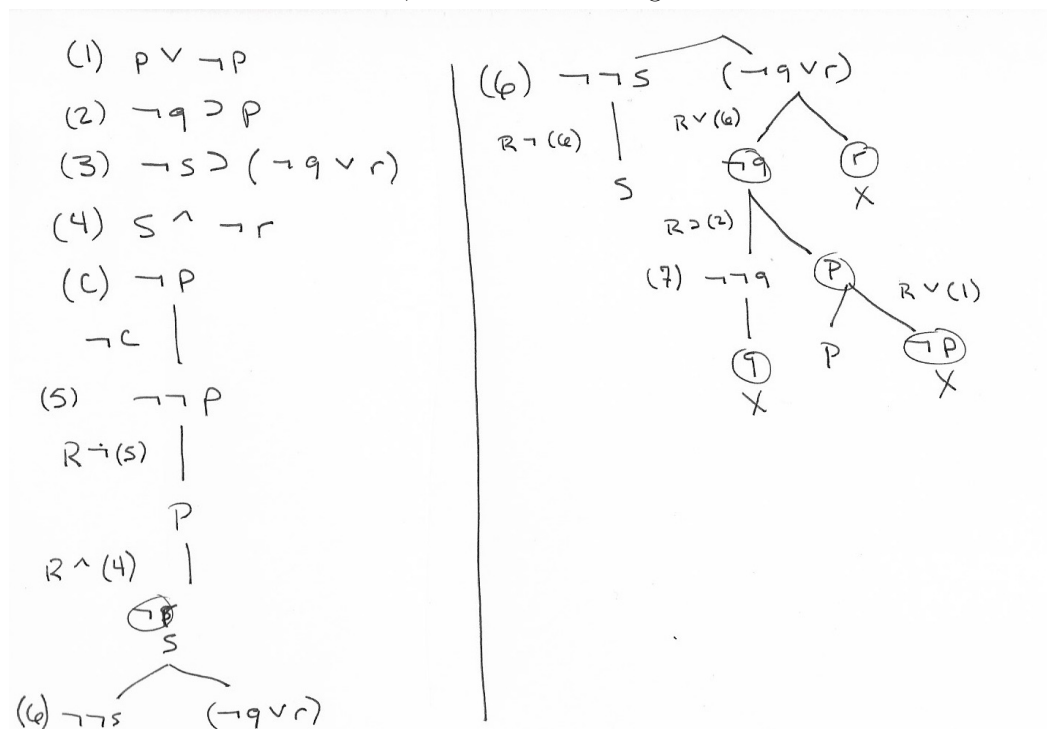 (1) P ∨ ¬P
(2) ¬q ⊃ P
(3) ¬s ⊃ (¬q ∨ r)
(4) S ∧ ¬r
(C) ¬P
¬C
(5) ¬¬P
R¬(5)
P
R ∧ (4)
¬
S
(6) ¬¬s (¬q ∨ r)
(6) ¬¬S (¬q ∨ r)
R¬(6) R∨(6)
¬q r
S X
R⊃(2)
(7) ¬¬q P
R∨(1)
q P ¬P
X X